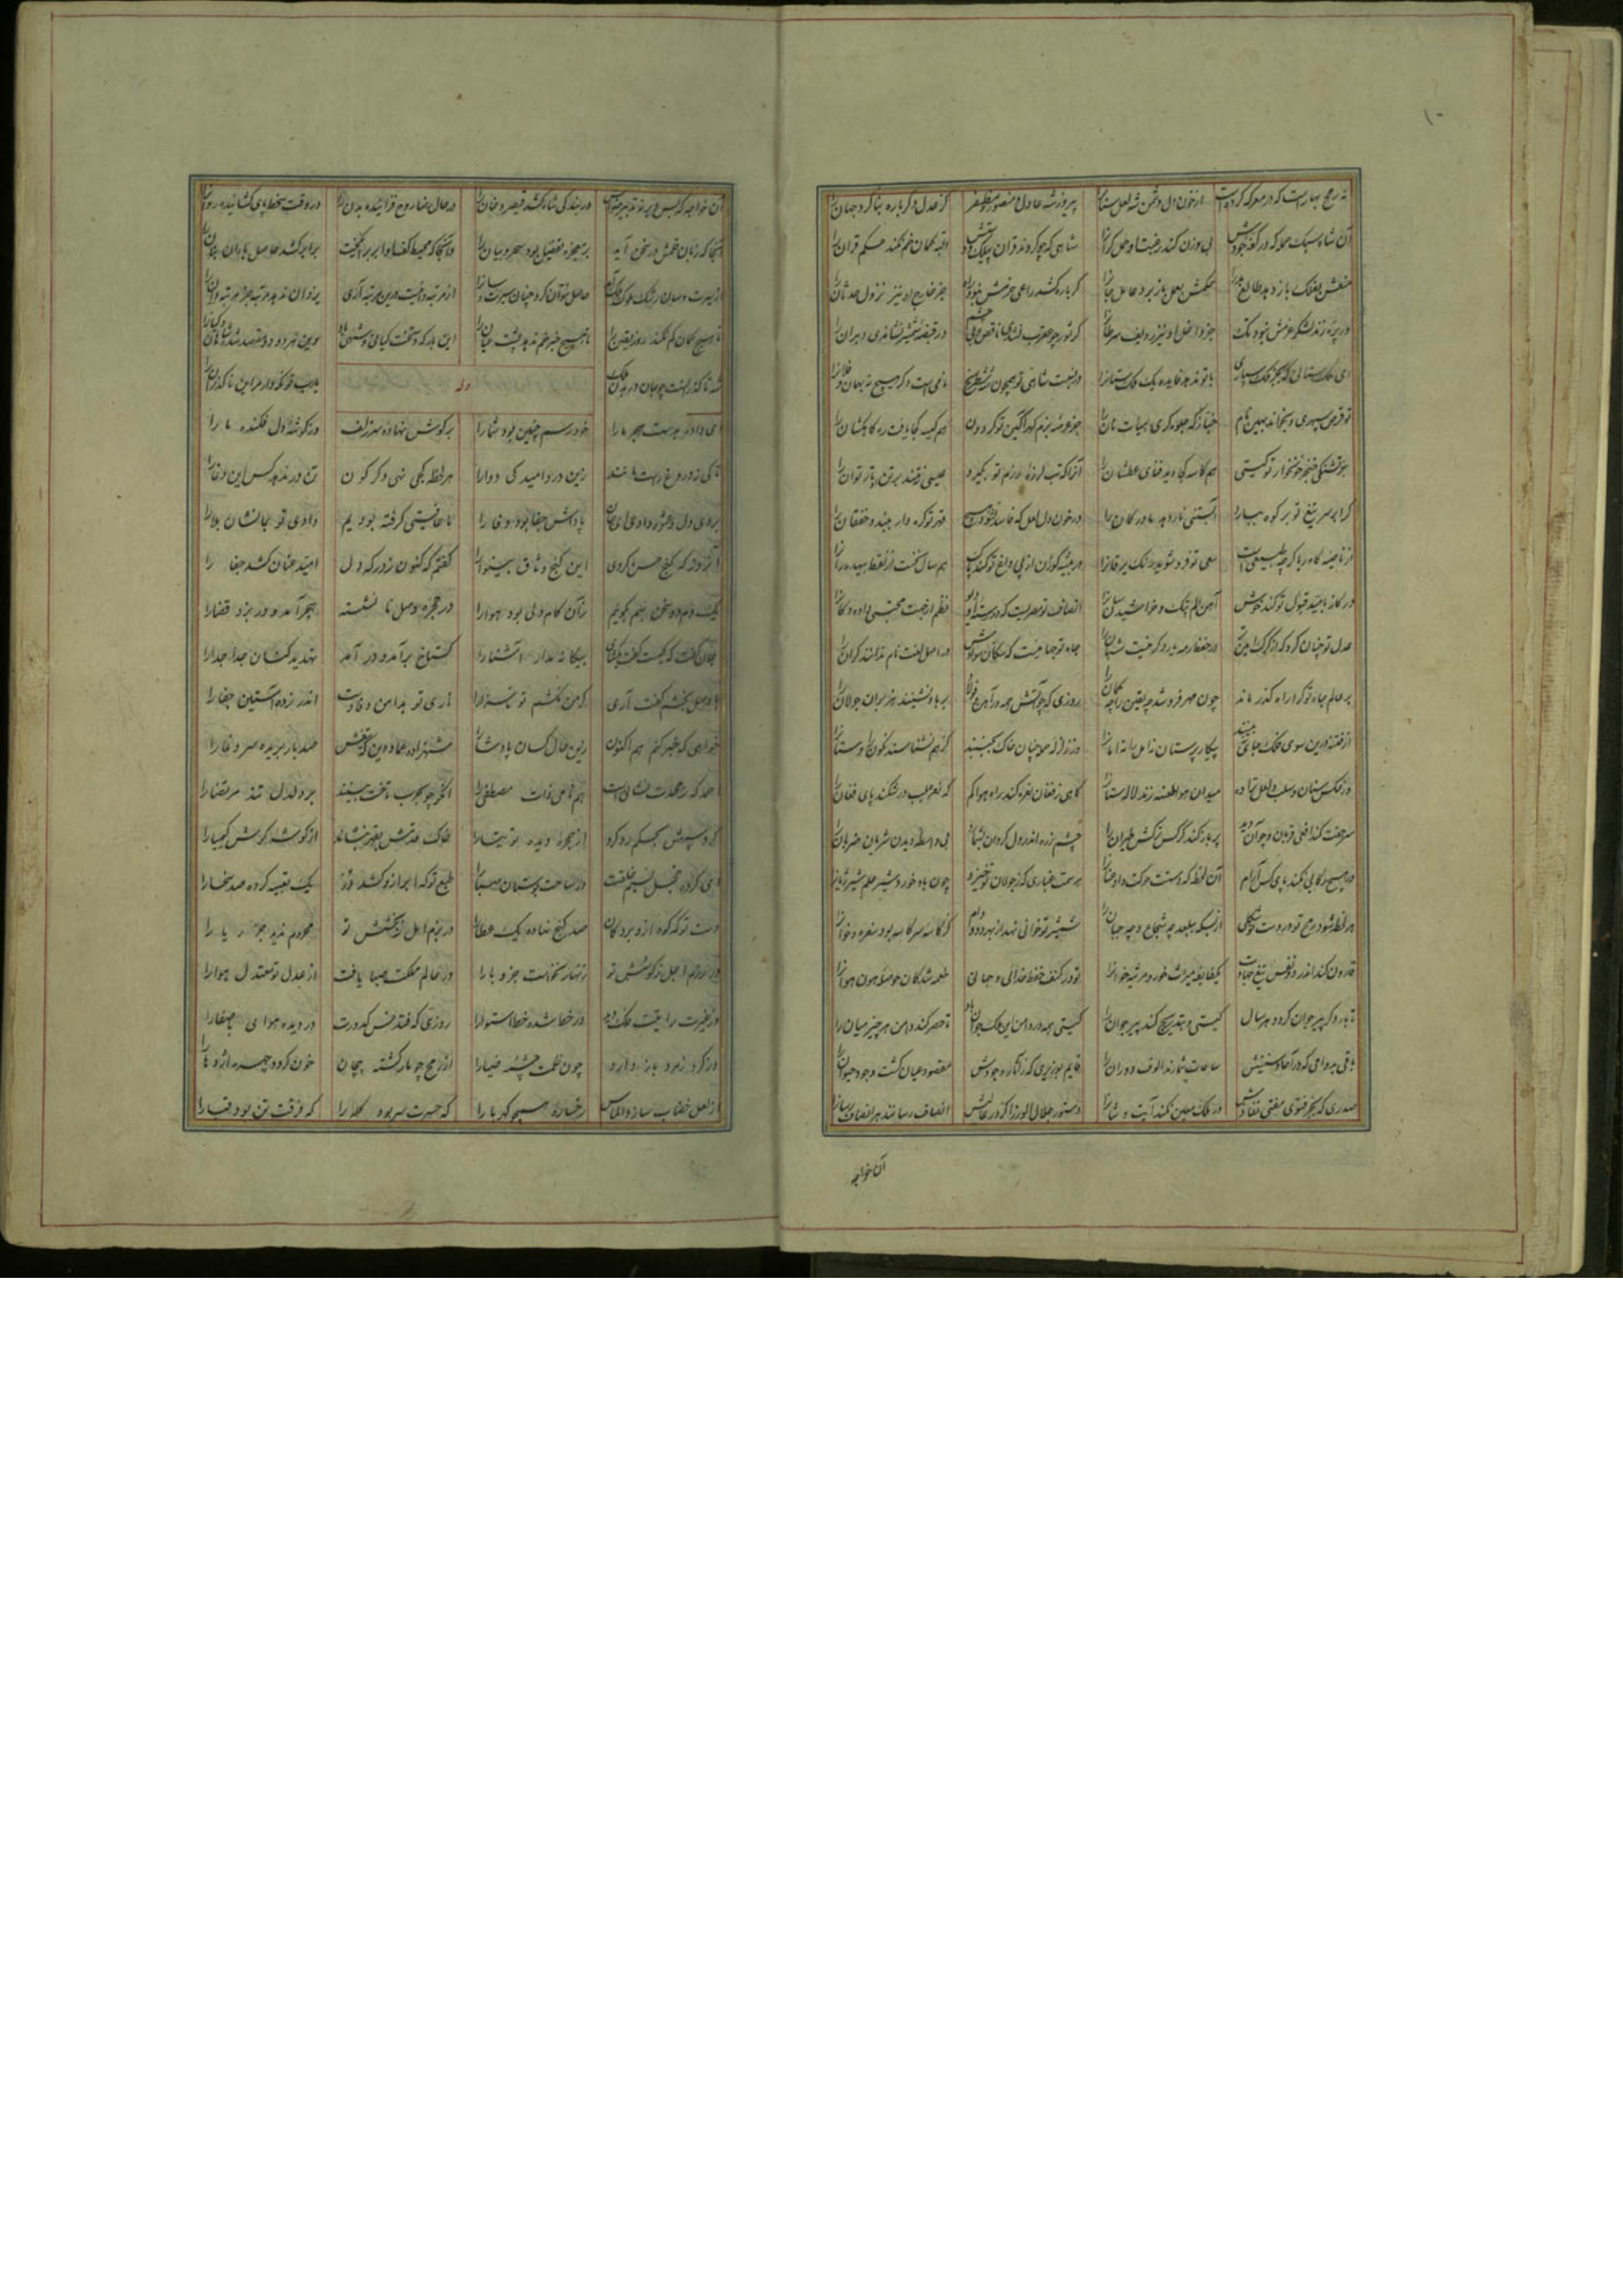 نه رمح بهارست که در معرکه کردست از خون دل دشمن شه لعل سنان را پیروز شه عادل منصور مظفر کز عدل دگر باره بنا کرد جهان را
آن شاه سبک حمله که در کفه جودش بی وزن کند رغبت او حمل گران را شاهی که چو کردند قران بیلک و دستش البته کمان خم نکند حکم قران را
بفلک باز دهد طالع بد را حکمش بعمل باز برد عامل جان را گر باره کشد راعی حزمش نبود راه جز خارج او نیز نزول حدثان را
ور پره زند لشکر عزمش نبود تک جز داخل او نیز ردیف سرطان را گر ثور چو عقرب نشدی ناقص و بی چشم در قبضه شمشیر نشاندی دبران را
ای ملک ستانی که بجز ملک سپاری با تو ندهد فایده یک ملک ستانرا در نسبت شاهی تو همچون شه شطرنج نامی است و گر هیچ نه بهمان و فلانرا
تو قرص سپهری و بخواند بهمین نام خباز گه جلوه گری هیات نان را جز عرصه بزم گهر آگین تو گردون هم کیسه کجا یافت ره کاهکشان را
جز تشنگی خنجر خونخوار تو گیتی هم کاسه کجا دید فنای عطشان را آنرا که تب لرزه رزم تو بگیرد عیسی بر تن تار توان را
گر ابر سر تیغ تو بر کوه ببارد آبستنی نار دهد مادر کان را در خون دل لعل که فاسد نشود هیچ قهر تو گره وار ببندد خفقان را
از ناصیه کاه ربا گرچه طبیعی است سعی تو فرو شوید رنگ یرقانرا در بیشه گوزن از پی داغ تو کند پاک هم سال نخست از نقط بیهده رانرا
در گاز بامید قبول تو کند خوش آهن الم پتک و خراشیدن سانرا انصاف تو مصریست که در رسته او دیو نظم از جهت محتسبی داده دکانرا
عدل تو چنان کرد که از گرگ امین تر در حفظ رمه یار دگر نیست شبانرا جاه تو جهانیست که سکان سوادش در اصل لغت نام ندانند کران را
بر عالم جاه تو کرا راه گذر ماند چون مهر فروشد چه یقین را چه گمانرا روزی که چو آتش همه در آهن و فولاد بر باد نشینند هزبران جولان را
از فتنه درین سوی فلک جای نبینند پیکار پرستان نه امل را نه امانرا وز زلزله حمله چنان خاک بجنبد کز هم نشناسند نگون را و ستانرا
وز عکس سنان و سلب لعل طراده میدان هوا طعنه زند لاله ستانرا گاهی ز فغان نعره کند راه هوا گم گه نعره بلب درشکند پای فغان را
سر جفت کند افعی قربان و چو آن دید پر باز کند کرکس ترکش طیران را چشم زره اندر دل گردان بشمارد بی واسطه دیدن شریان ضربان را
در هیچ رکابی نکند پای کس آرام آن لحظه که دستت حرکت داد عنانرا بر سمت غباری که ز جولان تو خیزد چون باد خورد شیر علم شیر ژیانرا
هر لحظه شود رمح تو در دست تو از بسکه چه شجاع و چه جبان را شمشیر تو خوانی نهد از بهر دد و دام کز کاسه سر کاسه بود سفره و خوانرا
قارون کند اندر دو نفس تیغ جهادت یکطایفه میراث خور و مرثیه خوانرا تو در کنف حفظ خدائی و جهانی طعمه شدگان حوصله هون هوانرا
تا باره گر پیر جوان گردد هر سال گیتی و بتدریج کند پیر جوانرا گیتی همه در دامن این ملک جوان باد تا حصر کند دامن هر چیز میان را
باقی بدوامی که در آحاد سنینش ساعات شمارند الوف دوران را قایم بوزیری که ز آثار وجودش مقصود عیان گشت وجود حیوان را
صدری که بجز فتوی مفتی نفاذش در ملک معین نکند آیت و شانرا دستور جلال الوزرا کز در عالیش انصاف رسانند هر انصاف رسانرا
آن خواجه
آن خواجه که بس دیر نه تدبیر صوابش در بندگی شاه کشد قیصر و خان را در حال رضا روح فزاینده بدن را در وقت سخط پای گشاینده روان را
آنجا که زبان قلمش در سخن آید بر معجزه تفضیل بود سحر و بیان را وآنجا که محیط کف او ابر برانگیخت بر ابر کشد حاصل باران بنان را
از سیرت و سان رشک ملوک و ملک آمد حاصل نتوان کرد چنان سیرت و سانرا از مرتبه دانیست درین مرتبه آری یزدان ندهد مرتبه جز مرتبه دانرا
تا هیچ گمان کم نکند روز یقین را تا هیچ خبر خم ندهد پشت عیان را این بارگه و تخت کیانی و شهی باد وین خسرو و دو مقصد شاهان و کیانرا
شه ناگذرانست چو جان در بدن ملک یارب تو نگه دار مر این ناگذران را
وله
ای داده بدست هجر ما را خود رسم چنین بود شما را بر گوش نهاده سر زلف وز گوشه دل فکنده ما را
تا کی ز دروغ راست مانند زین درد امید کی دوا را هر لحظه کجی نهی دگرگون تن در ندهد کس این دغا را
بردی دل و عشوه دادی ای جان پاداش جفا بود وفا را ما عافیتی گرفته بودیم دادی تو بما نشان بلا را
آنروز که گنج حسن کردی این کنج وثاق بینوا را گفتم که کنون ز درگه دل امید عنان کشد جفا را
یک دم دو سخن بهم بگوییم زان کام دلی بود هوا را در حجره وصل نا نشسته هجر آمد و در بزد قضا را
جان گفت که کیست گفت بگشای بیگانه مدار آشنا را گستاخ برآمد و درآمد تهدید کنان جدا جدا را
با وصل بخشم گفت آری کز من نکشم تو نیز را آری تو بدامن وفا دست اندر زده آستین جفا را
خواهی که خبر کنم هم اکنون زین حال کسان پادشا را شهزاده عماد دین که تیغش صد بار بریده سر وغا را
احمد که ز محمدت نشانی است هم نامی ذات مصطفی را آنگو چو بحرب تاخت بیند بر دلدل تند مرتضا را
کردست سپس بحکم رد کرد از هجر دیده توتیا را خاک قدمش بقهر بنشاند از گوشه گوش کیمیا را
ای کرده خجل نسیم خلقت در ساحت بوستان صبا را طبع تو که ابر ازو کشد در یک تعبیه کرده صد سخا را
دست تو که کوه ازو برد کان صد گنج نهاده یک عطا را در بزم امل ز بخشش تو محروم ندید جز ریا را
در رزم اجل ز کوشش تو زنهار نخواست جز وبا را در عالم ملکت صبا یافت از عدل تو معتدل هوا را
وز غیرت رایتت فلک دید در خط شده خط استوا را روزی که فتد خس کدورت در دیده هوای با صفا را
در گرد نبرد باز دارد چون ظلمت چشمه ضیا را از رمح چو مار کشته پیچان خون گردد چهره اژدها را
از لعل خضاب ساز و الماس رخساره همچو کهربا را که حسرت سر بود کله را که فرقت تن بود قبا را